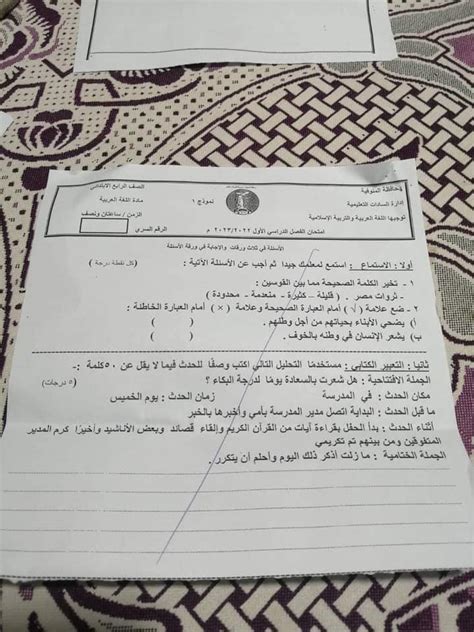 محافظة المنوفية
إدارة السادات التعليمية
توجيها اللغة العربية والتربية الإسلامية
نموذج ١
الصف الرابع الابتدائي
مادة اللغة العربية
الزمن / ساعتان ونصف
امتحان الفصل الدراسي الأول ٢٠٢٣/٢٠٢٢ م
الرقم السري
الأسئلة في ثلاث ورقات والإجابة في ورقة الأسئلة
أولا : الاستماع : استمع لمعلمك جيدا ثم أجب عن الأسئلة الآتية : (كل نقطة درجة)
١ - تخير الكلمة الصحيحة مما بين القوسين :
- ثروات مصر . ( قليلة – كثيرة – منعدمة – محدودة )
٢ - ضع علامة ( √ ) أمام العبارة الصحيحة وعلامة ( × ) أمام العبارة الخاطئة :
أ) يضحي الأبناء بحياتهم من أجل وطنهم . ( )
ب) يشعر الإنسان في وطنه بالخوف . ( )
ثانيا : التعبير الكتابي : مستخدمًا التحليل التالي اكتب وصفًا للحدث فيما لا يقل عن ٥٠ كلمة :-
الجملة الافتتاحية : هل شعرت بالسعادة يومًا لدرجة البكاء ؟ (٥ درجات)
مكان الحدث : في المدرسة زمان الحدث : يوم الخميس
ما قبل الحدث : البداية اتصل مدير المدرسة بأمي وأخبرها بالخبر
أثناء الحدث : بدأ الحفل بقراءة آيات من القرآن الكريم وإلقاء قصائد وبعض الأناشيد وأخيرًا كرم المدير
المتفوقين ومن بينهم تم تكريمي
الجملة الختامية : ما زلت أذكر ذلك اليوم وأحلم أن يتكرر .